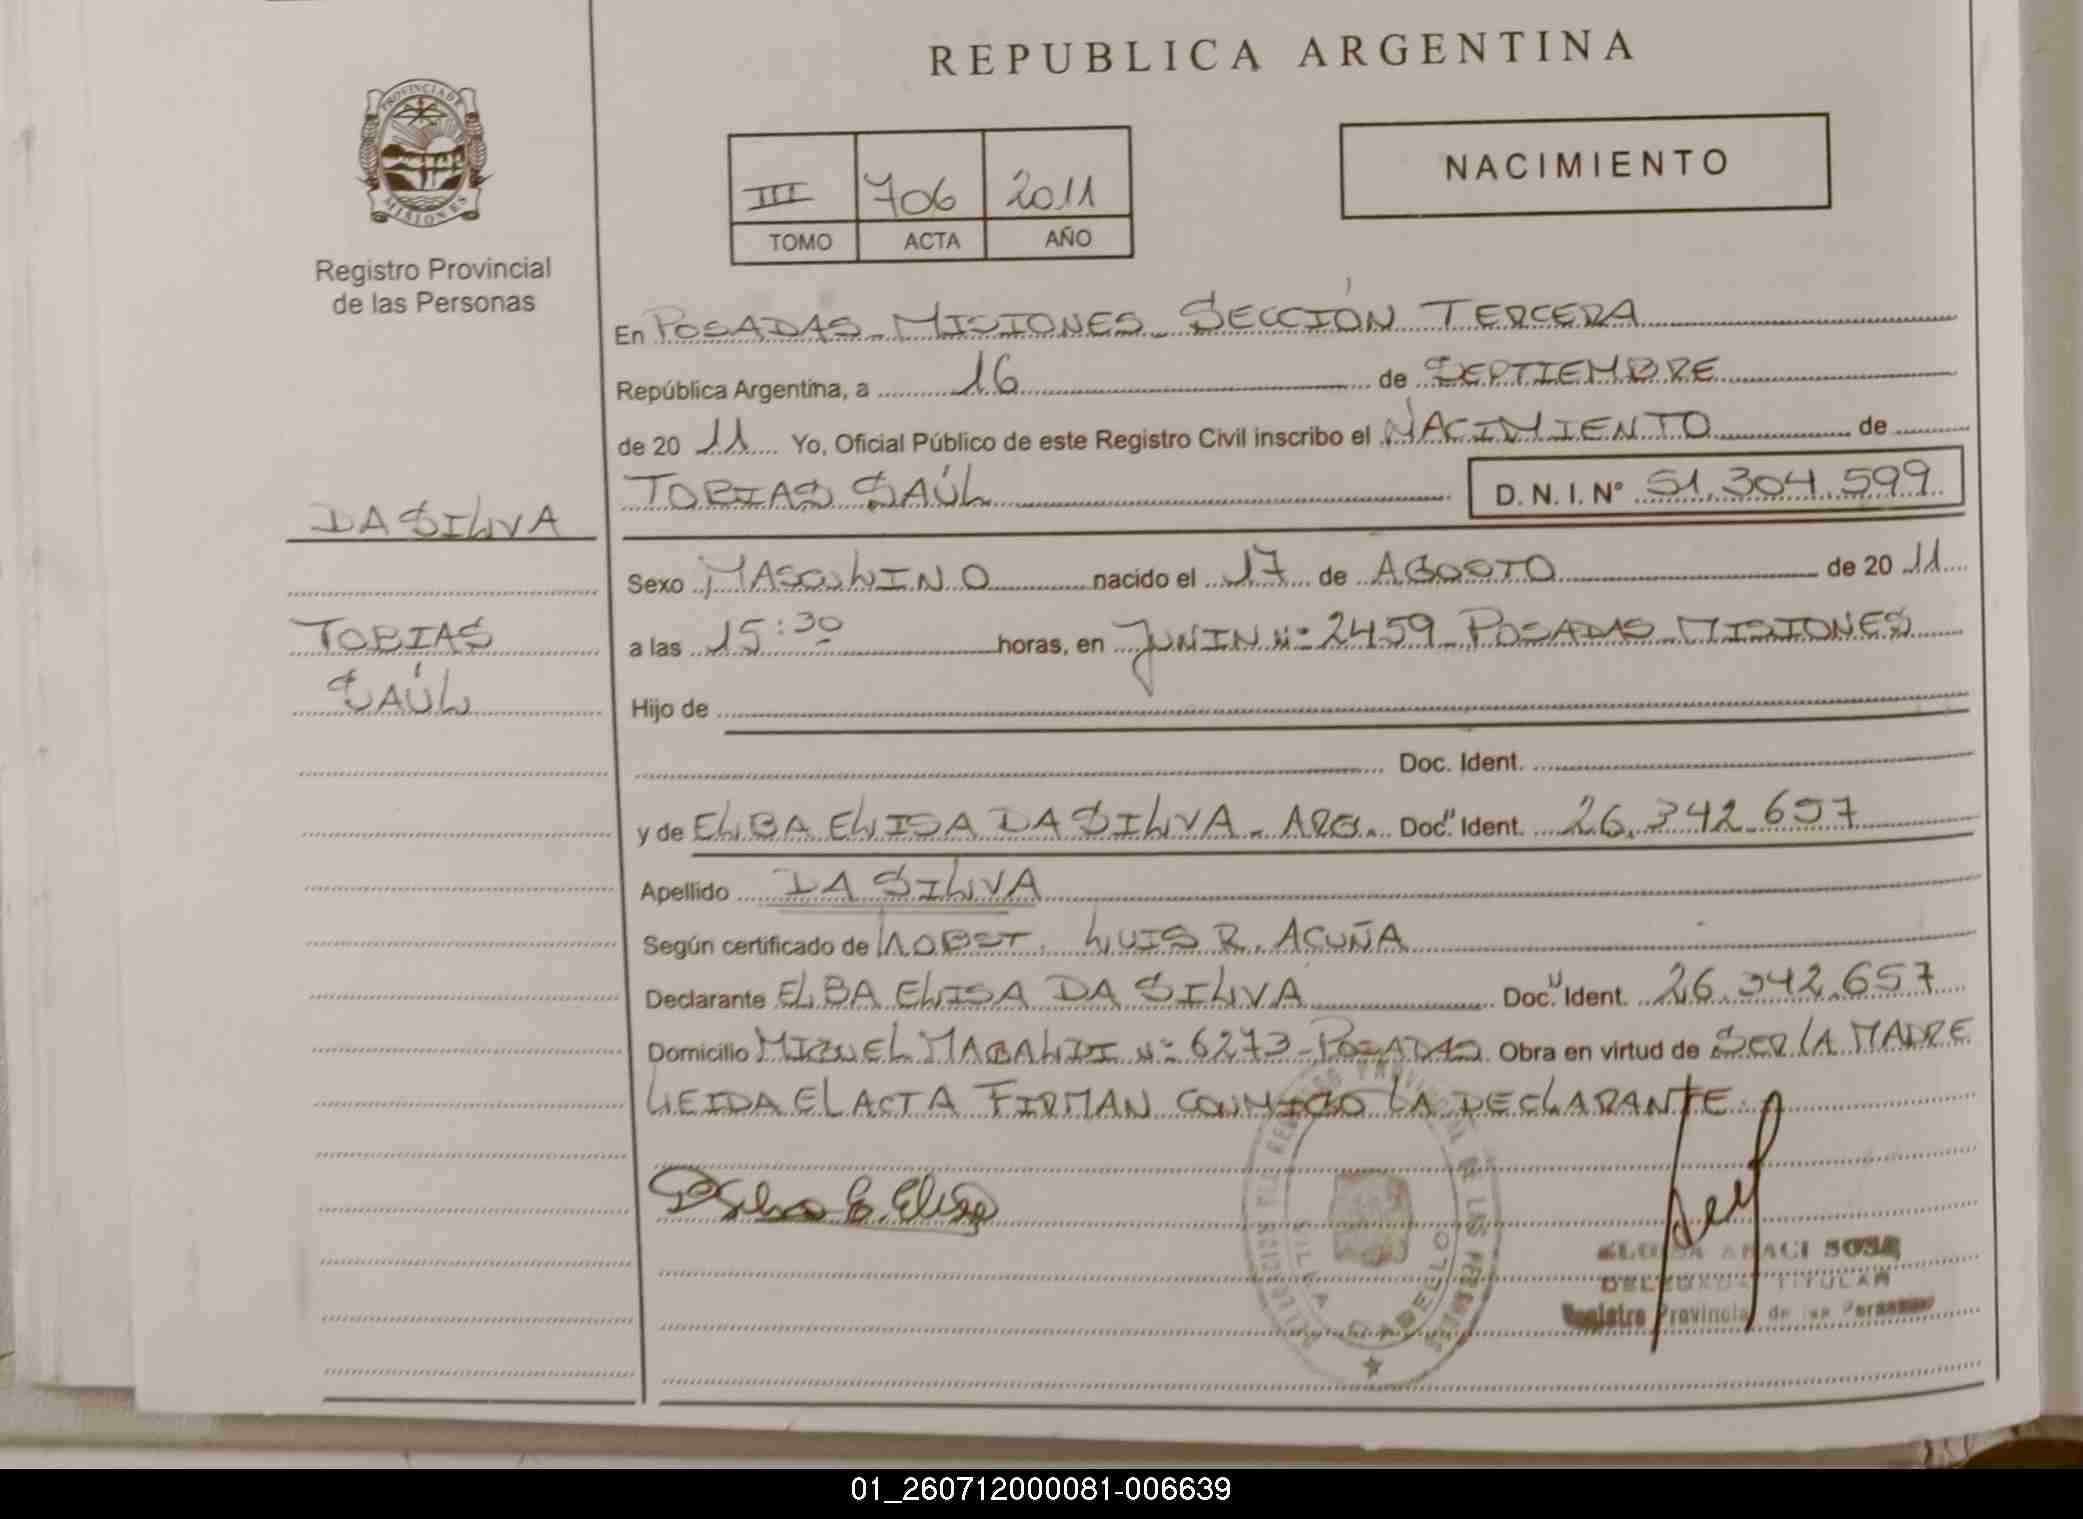 REPUBLICA ARGENTINA
PROVINCIA DE
MISIONES
Registro Provincial
de las Personas
III 706 2011
TOMO ACTA AÑO
NACIMIENTO
En POSADAS - MISIONES - SECCIÓN TERCERA
República Argentina, a 16 de SEPTIEMBRE
de 20 11 Yo, Oficial Público de este Registro Civil inscribo el NACIMIENTO de
TOBIAS SAÚL D. N. I. Nº 51.304.599
DA SILVA
TOBIAS
SAÚL
Sexo MASCULINO nacido el 17 de AGOSTO de 20 11
a las 15:30 horas, en JUNIN Nº 2459 - POSADAS - MISIONES
Hijo de
Doc. Ident.
y de ELBA ELISA DA SILVA - ARG. Doc. Ident. 26.342.657
Apellido DA SILVA
Según certificado de LUIS R. ACUÑA
Declarante ELBA ELISA DA SILVA Doc. Ident. 26.342.657
Domicilio MIGUEL MAGALDI Nº 6273 - POSADAS Obra en virtud de SER LA MADRE
LEIDA EL ACTA FIRMAN CONMIGO LA DECLARANTE.
E. Elisa
VILLA CABELLO
SOSA
DELEGADA TITULAR
Registro Provincial de las Personas
01_260712000081-006639